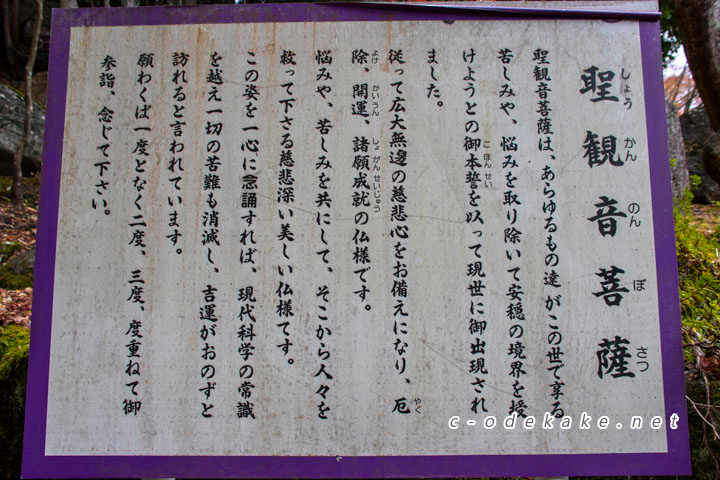 聖観音菩薩
しょうかんのんぼさつ
聖観音菩薩は、あらゆるもの達がこの世で享る
苦しみや、悩みを取り除いて安穏の境界を授
けようとの御本誓を以って現世に御出現され
ごほんせい
ました。
従って広大無邊の慈悲心をお備えになり、厄
やく
除、開運、諸願成就の仏様です。
よけ かいうん しょがんせいじゅう
悩みや、苦しみを共にして、そこから人々を
救って下さる慈悲深い美しい仏様てす。
この姿を一心に念誦すれば、現代科学の常識
を越え一切の苦難も消滅し、吉運がおのずと
訪れると言われています。
願わくば一度となく二度、三度、度重ねて御
参詣、念じて下さい。
c-odekake.net